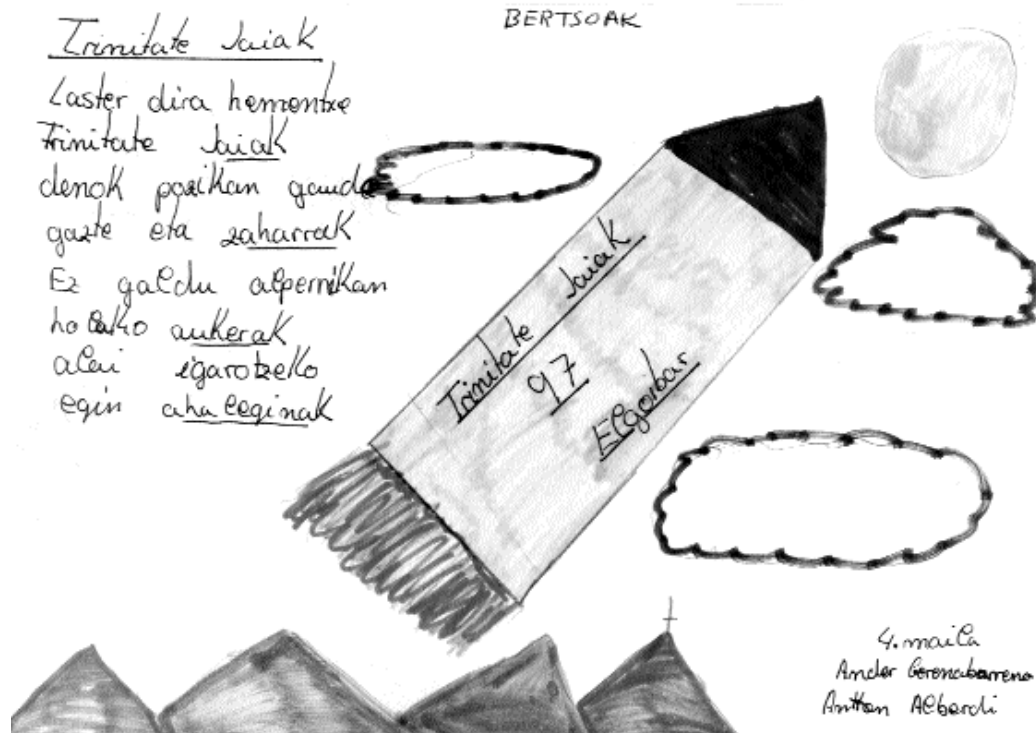 BERTSOAK
Trinitate Jaiak
Laster dira hementxe
Trinitate Jaiak
denok pozikan gaude
gazte eta zaharrak
Ez galdu alpernikan
holako aukerak
alai igarotzeko
egin ahaleginak
Trinitate Jaiak
97
Elgoibar
4. maila
Ander Gerenabarrena
Antton Alberdi